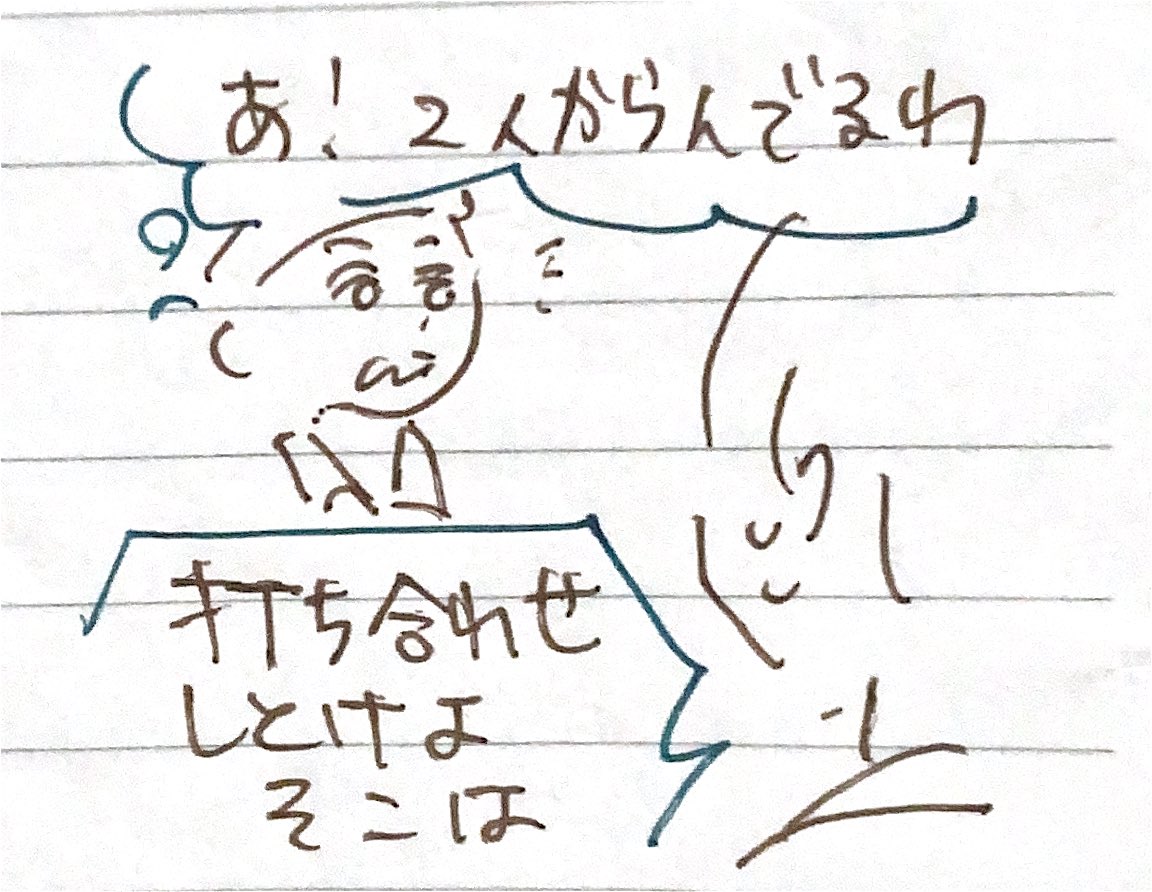 あ！2人からんでるわ
打ち合わせ
しとけよ
そこは